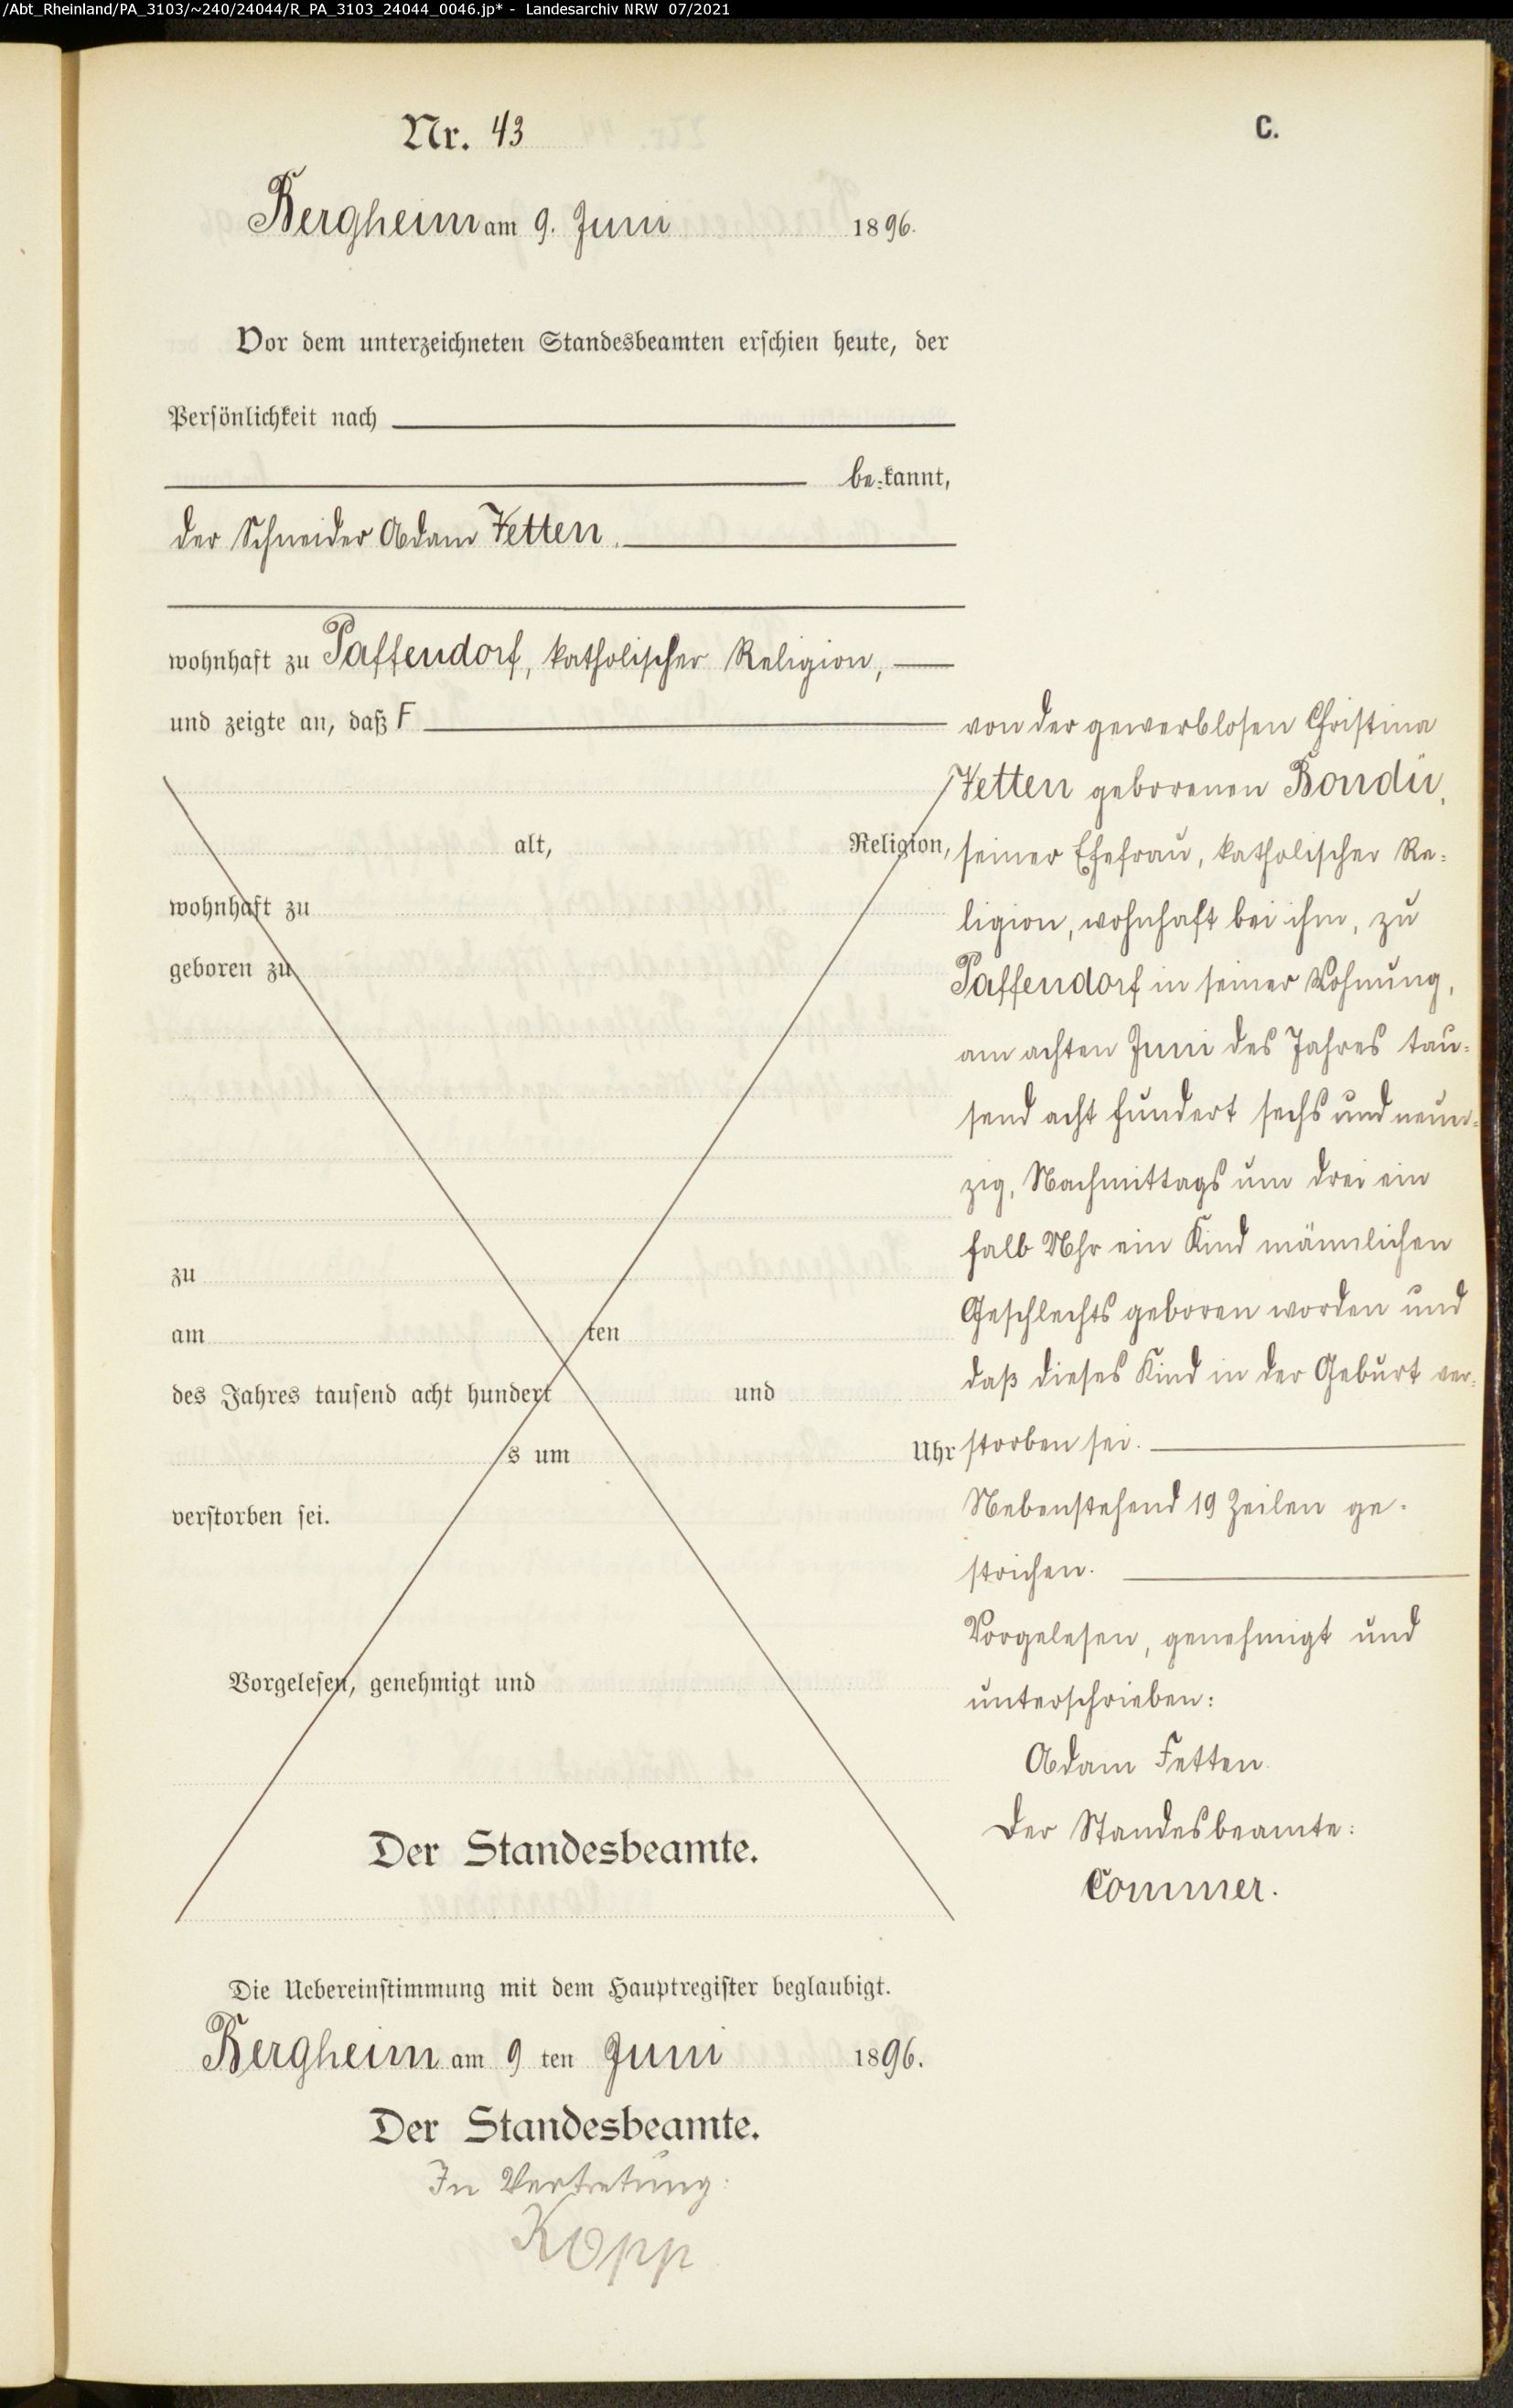 /Abt_Rheinland/PA_3103/~240/24044/R_PA_3103_24044_0046.jp* - Landesarchiv NRW 07/2021
Nr. 43
C.
Bergheim am 9. Juni 1896.
Vor dem unterzeichneten Standesbeamten erschien heute, der
Persönlichkeit nach
be-kannt,
der Schneider Adam Fetten.
wohnhaft zu Paffendorf, katholischer Religion,
und zeigte an, daß F
alt, Religion,
wohnhaft zu
geboren zu
zu
am ten
des Jahres tausend acht hundert und
s um Uhr
verstorben sei.
Vorgelesen, genehmigt und
Der Standesbeamte.
von der gewerblosen Christina
Fetten geborenen Bondü,
seiner Ehefrau, katholischer Re-
ligion, wohnhaft bei ihm, zu
Paffendorf in seiner Wohnung,
am achten Juni des Jahres tau-
send acht hundert sechs und neun-
zig, Nachmittags um drei ein
halb Uhr ein Kind männlichen
Geschlechts geboren worden und
daß dieses Kind in der Geburt ver-
storben sei.
Nebenstehend 19 Zeilen ge-
strichen.
Vorgelesen, genehmigt und
unterschrieben:
Adam Fetten.
Der Standesbeamte:
Commer.
Die Uebereinstimmung mit dem Hauptregister beglaubigt.
Bergheim am 9 ten Juni 1896.
Der Standesbeamte.
In Vertretung:
Kopp